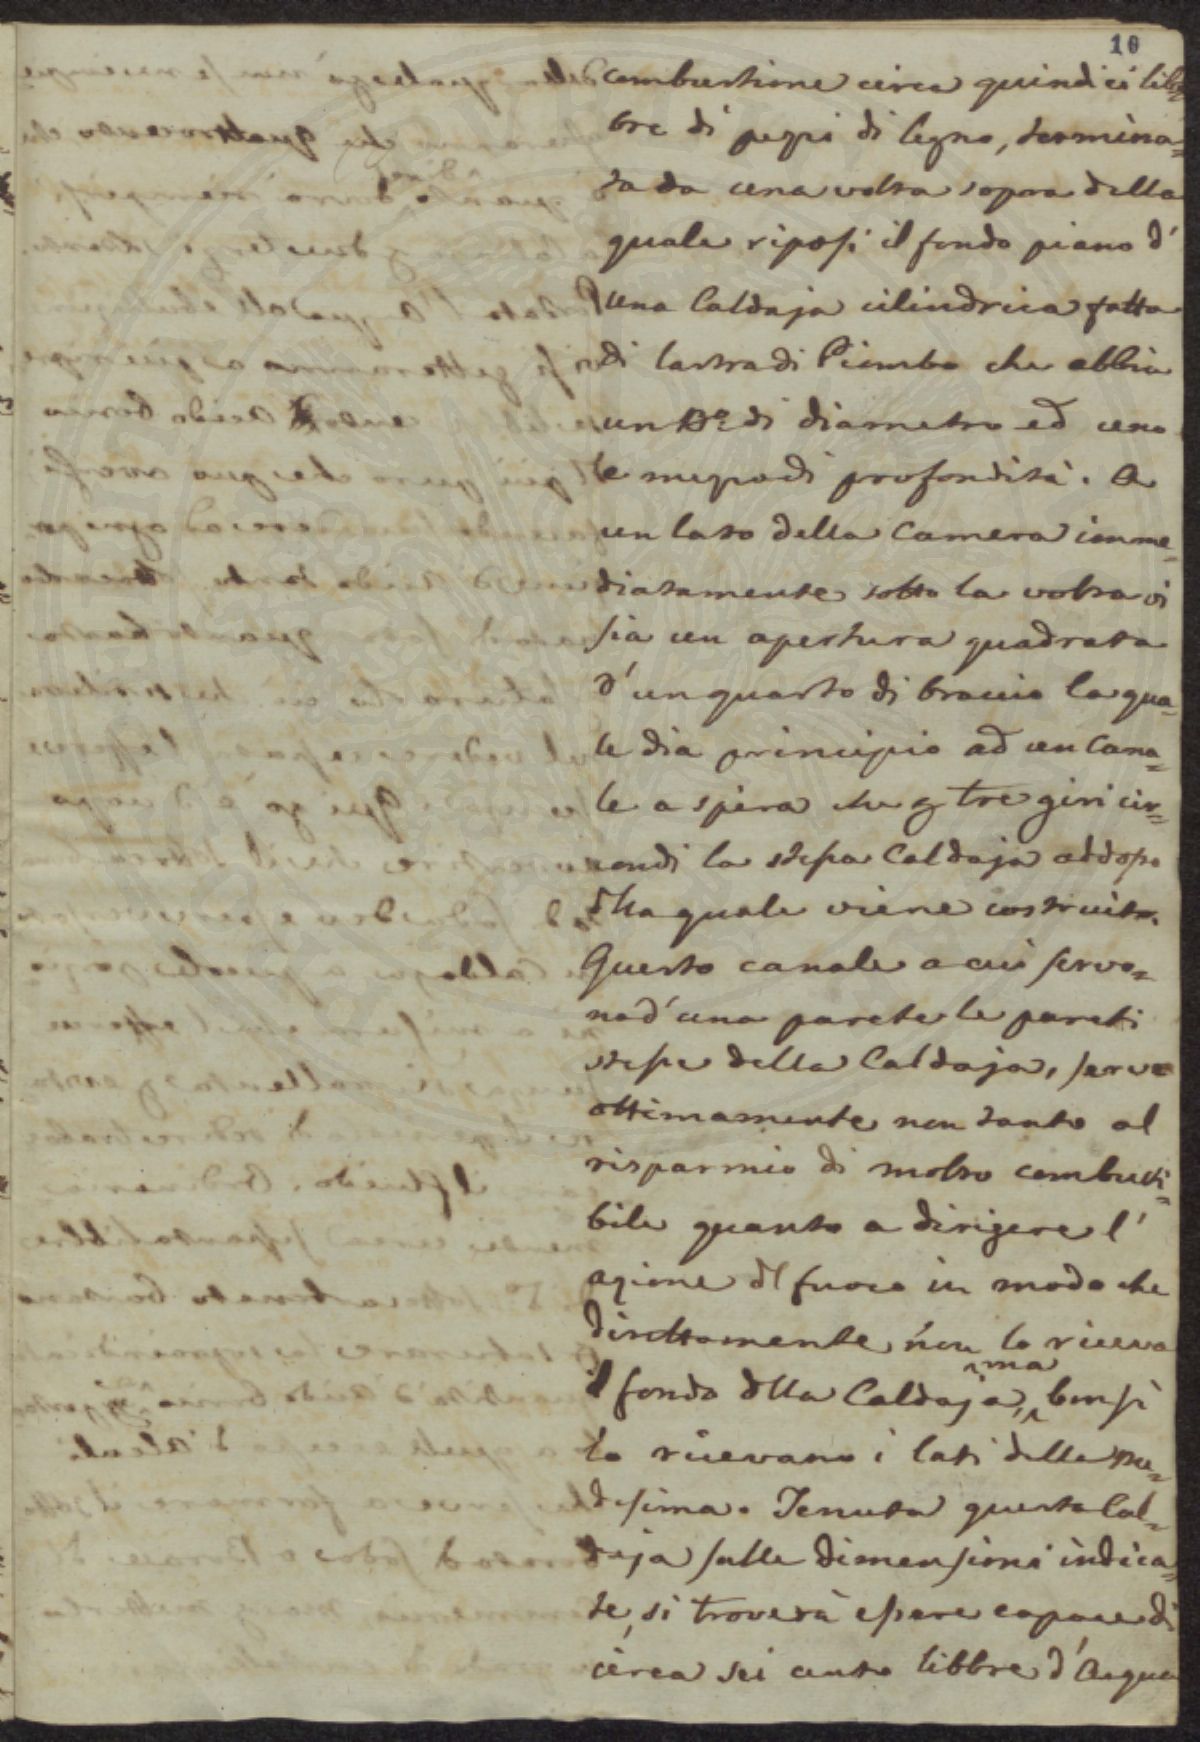 10
combustione circa quindici lib=
bre di pezzi di legno, termina=
ta da una volta sopra della
quale riposi il fondo piano d'
una Caldaja cilindrica fatta
di lastra di Piombo che abbia
un Bº. di diametro ed uno
e mezzo di profondità. A
un lato della Camera imme=
diatamente sotto la volta vi
sia un apertura quadrata
d'un quarto di braccio la qua=
le dia principio ad un Cana=
le a spira che p tre giri cir=
condi la stessa Caldaja addoſſo
dlla quale viene costruito.
Questo canale a cui servo=
no d'una parete le pareti
stesse della Caldaja, serve
ottimamente non tanto al
risparmio di molto combusti=
bile quanto a dirigere l'
azione dl fuoco in modo che
direttamente non lo riceva
il fondo dlla Caldaja, ma bensì
lo ricevano i lati della me=
desima. Tenuta questa Cal=
daja sulle dimensioni indica=
te, si troverà essere capace di
circa sei cento libbre d'Acqua